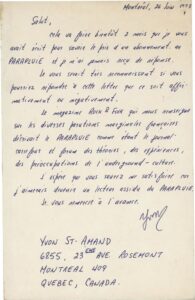 Montréal, 26 Juin 1973
Salut,
cela va faire bientôt 2 mois que je vous
avait écrit pour savoir le prix d'un abonnement au
PARAPLUIE et je n'ai jamais reçu de réponse.
Je vous serait très reconnaissant si vous
pouviez répondre à cette lettre que ce soit affir-
mativement ou négativement.
Le magazine ROCK & FOLK qui nous renseigne
sur les diverses parutions marginales françaises
décrivait le PARAPLUIE comme étant le journal
carrefour et forum des théories, des expériences,
des préoccupations de l'underground-culture.
J'espère que vous saurez me satisfaire car
j'aimerais devenir un lecteur assidu du PARAPLUIE.
Je vous remercie à l'avance.
Yvon
YVON ST-AMAND
6855, 23ème AVE ROSEMONT
MONTREAL 409
QUEBEC, CANADA.